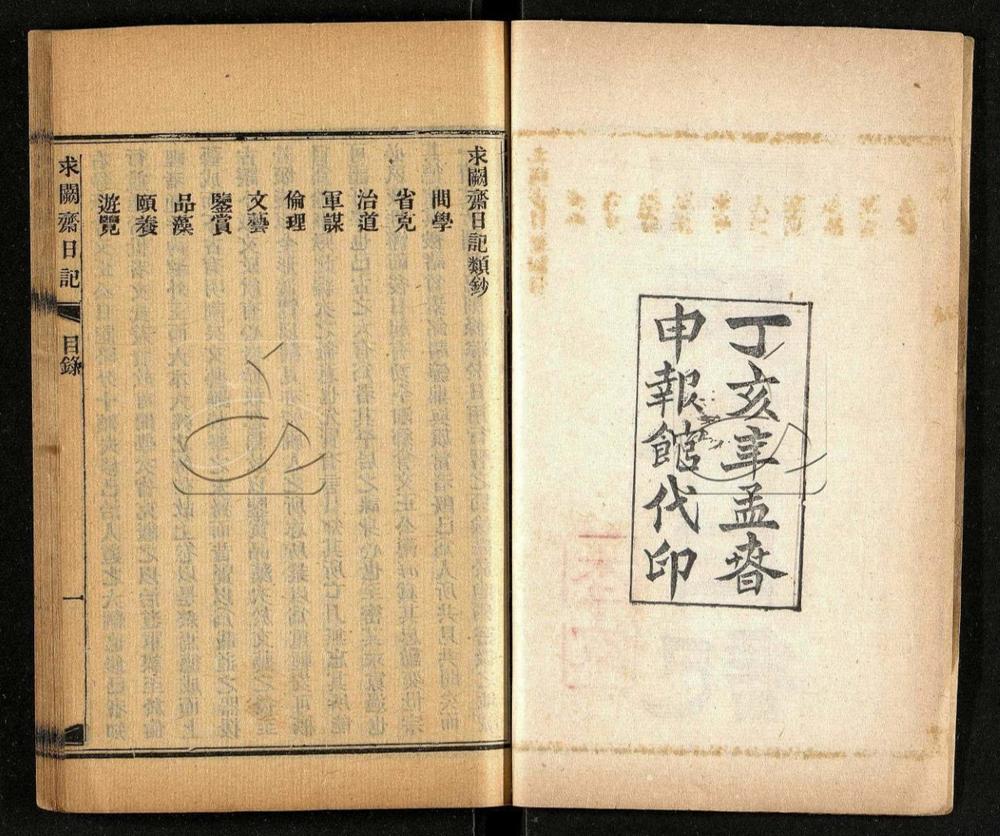 丁亥年孟春
申報館代印
求闕齋日記類鈔
問學
省克
治道
軍謀
倫理
文藝
鑒賞
品藻
頤養
遊覽
求闕齋日記
目錄
一